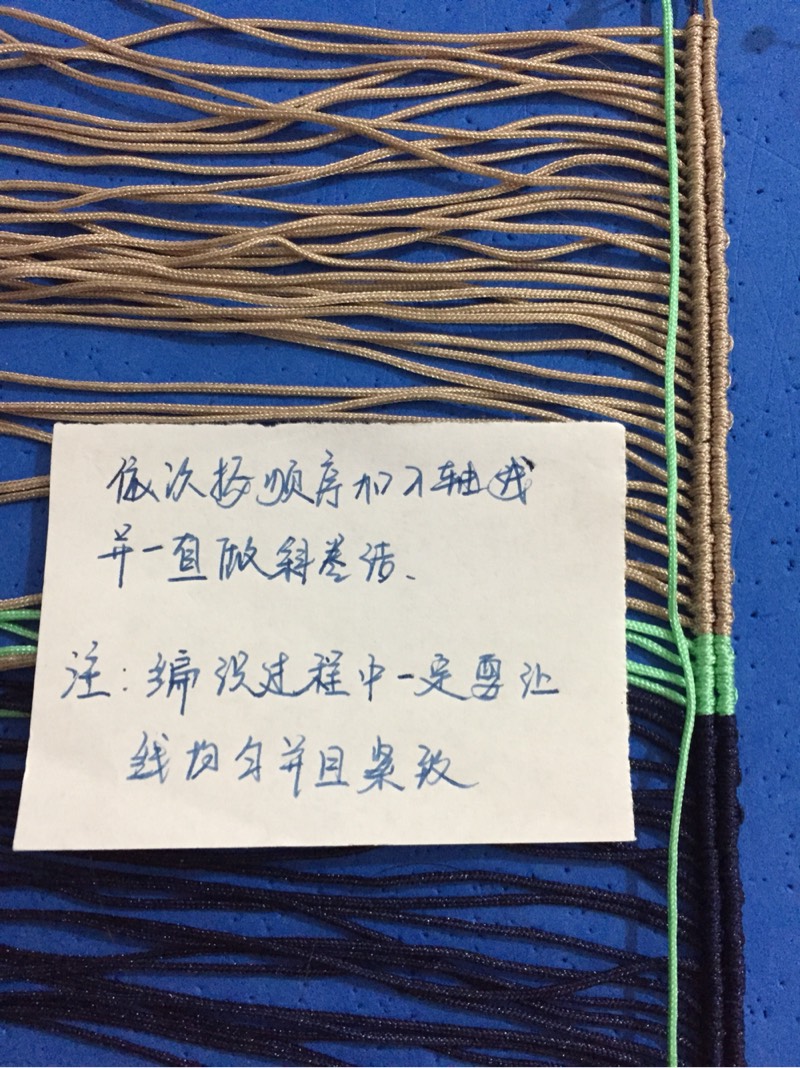 依次按顺序加入轴线
并一直做斜卷结、
注:编织过程中一定要让
线均匀并且紧致